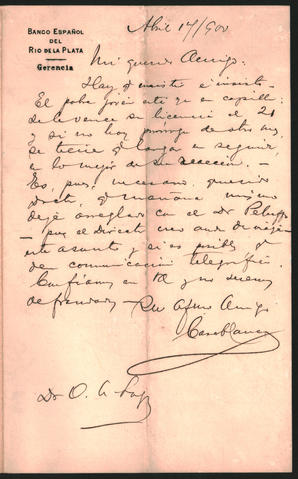 BANCO ESPAÑOL
DEL
RIO DE LA PLATA
Gerencia
Abril 17/900
Mi querido Amigo:
Hay q' insistir é insistir
El pobre joven está ya en capilla:
le vence su licencia el 21
y si no hay prorroga de otro mes,
se tiene q' largar en seguida,
en lo mejor de su
Es, pues, necesario, querido
q' mañana mismo
deje arreglado con el Dr
pues el Directo
este asunto y si es posible q'
den comunicacion telegráfica
Confiamos en Vd y no seremos
defraudados – Su Afmo Amigo
Casablanca
Dr O.